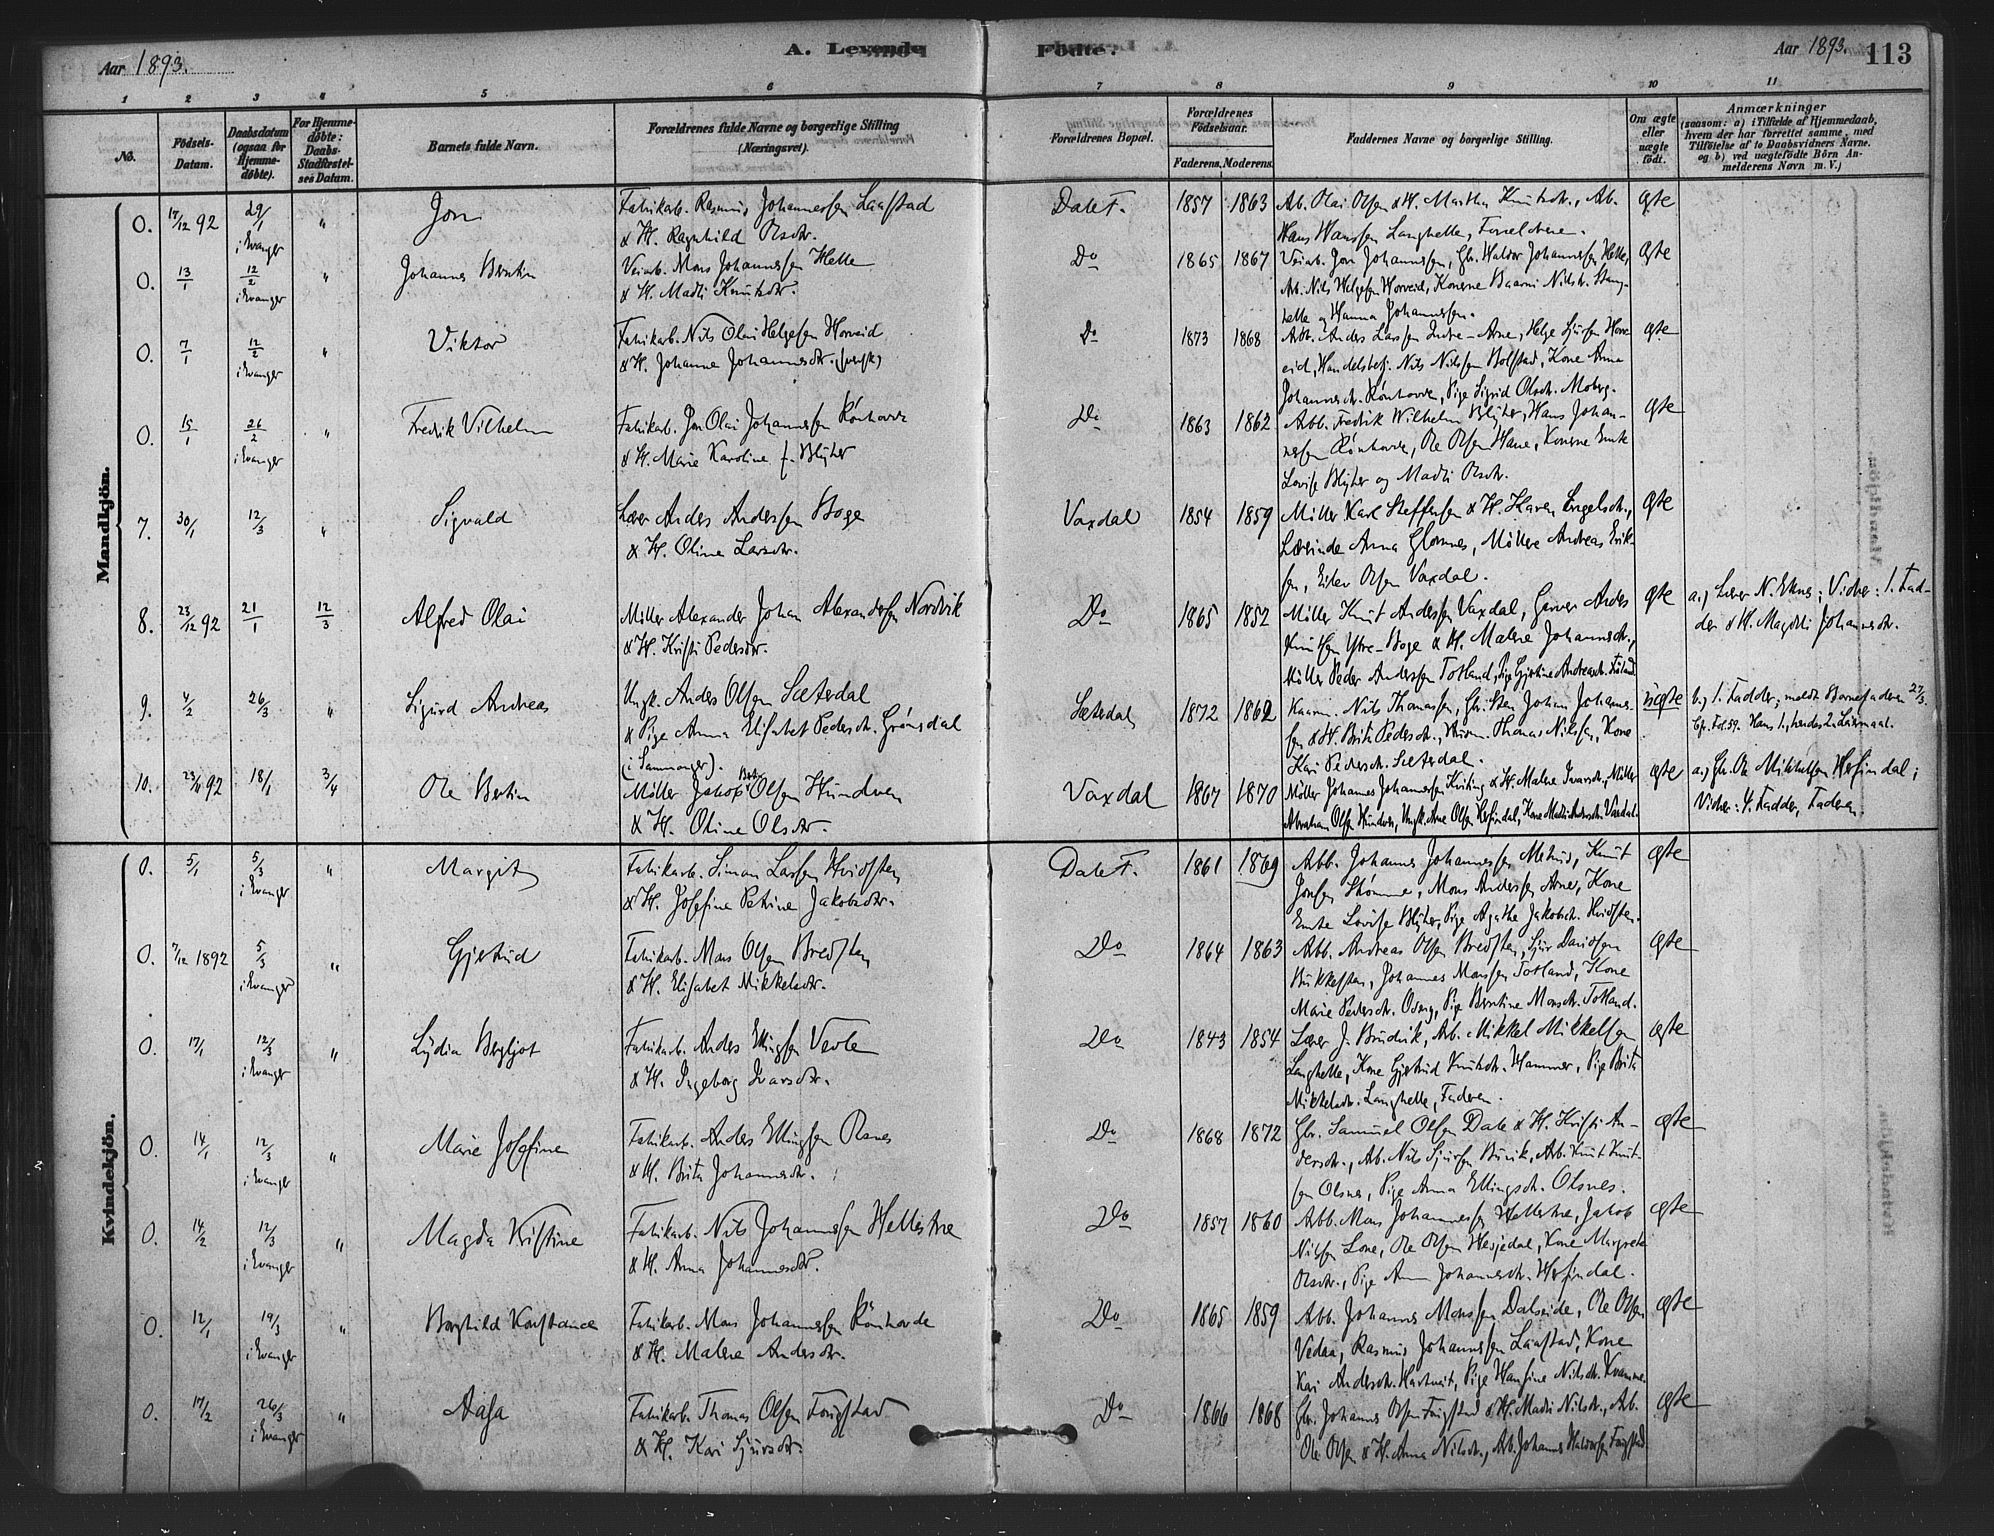 Aar 1893.
A. Levende
Födte.
Aar 1893.
113
1 2 3 4 5 6 7 8 9 10 11
No.
Födsels-
Datum.
Daabsdatum
(ogsaa for
Hjemme-
döbte).
For Hjemme-
döbte:
Daabs-
Stadfæstel-
ses Datum.
Barnets fulde Navn.
Forældrenes fulde Navne og borgerlige Stilling
(Næringsvei).
Forældrenes Bopæl.
Forældrenes
Födselsaar.
Faderens. Moderens.
Faddernes Navne og borgerlige Stilling.
Om ægte
eller
uægte
födt.
Anmærkninger
(saasom: a) i Tilfælde af Hjemmedaab,
hvem der har forrettet samme, med
Tilföielse af to Daabsvidners Navne.
og b) ved uægtefödte Börn An-
melderens Navn m. V.)
Mandkjön.
0. 17/12 92 29/1 i Evanger " Jon
Fabrikarb. Rasmus Johannessen Laastad
& H. Ragnhild Olsdtr.
Dale F. 1857 1863
Arb. Olai Olsen & H. Martha Knutsdtr., Arb.
Hans Hanssen Langhelle, Forældrene.
ægte
0. 13/1 12/2 i Evanger " Johannes Berntin
Veiarb. Mons Johannessen Helle
& H. Madli Knutsdtr.
Do 1865 1867
Veiarb. Jon Johannessen, Gbr. Haldor Johannessen Helle,
Arb. Nils Helgesen Horveid, Konerne Baarni Nilsdtr. Stang-
helle og Hanna Johannessen.
ægte
0. 7/1 12/2 i Evanger " Viktor
Fabrikarb. Nils Olai Helgesen Horveid
& H. Johanne Johannesdtr.
Do 1873 1868
Arbb. Anders Larssen Indre-Arne, Helge Sjursen Horv-
eid, Handelsbetj. Nils Nilssen Bolstad, Kone Anna
Johannesdtr. Rönhovde, Pige Sigrid Olsdtr. Moberg.
ægte
0. 15/1 26/2 i Evanger " Fredrik Vilhelm
Fabrikarb. Jon Olai Johannessen Rönhovde
& H. Marie Karoline f. Blÿher
Do 1863 1862
Arbb. Fredrik Wilhelm Blÿher, Hans Johan-
nessen Rönhovde, Ole Olsen Hane, Konerne Emte
Lovise Blÿher og Madli Olsdtr.
ægte
7. 30/1 12/3 " Sigvald
Lærer Anders Anderssen Boge
& H. Oline Larsdtr.
Vaxdal 1854 1859
Möller Karl Steffensen & H. Karen Engelsdtr.,
Lærerinde Anna Glomnes, Möllere Andreas Erik-
sen, Eilev Olsen Vaxdal.
ægte
8. 23/12 92 21/1 12/3 Alfred Olai
Möller Alexander Johan Alexandersen Nordvik
& H. Kristi Pedersdtr.
Do 1865 1852
Möller Knut Anderssen Vaxdal, Garver Anders
Knutsen Ytre-Boge & H. Malene Johannesdtr.,
Möller Peder Anderssen Totland, Pige Gjertine Andreasdtr.
ægte
a.) Lærer N. Eknes; Vidner: 1. Fad-
der & H. Magdli Johannesdtr.
9. 4/2 26/3 " Sigurd Andreas
Ungk. Anders Olsen Sætersdal
& Pige Anna Elisabet Pedersdtr. Grönsdal
(i Samnanger).
Sætersdal 1872 1862
Kaarm. Nils Thomassen, Gbr. Sten Johan Johannes-
sen & H. Brita Pedersdtr., Husm. Thomas Nilssen, Kone
Kari Pedersdtr. Sætersdal.
uægte
b.) 1. Fadder, meldt Barnefaderen 27/3.
Cfr. Fol. 59. Hans 1., hendes 2. Leiermaal.
10. 23/11 92 18/1 3/4 Ole Bertin
Möller Jakob Olsen Hundven
& H. Oline Olsdtr.
Vaxdal 1867 1870
Möller Johannes Johannessen Kviting & H. Malene Ivarsdtr., Möller
Abraham Olsen Hundven, Ungk. Arne Olsen Herfindal, Kone Madli Andersdtr. Vaxdal.
ægte
a.) Gbr. Ole Mikkelsen Herfindal;
Vidner: 4. Fadder, Faderen.
Kvindekjön.
0. 5/1 5/3 i Evanger " Margit
Fabrikarb. Simon Larssen Hvidsten
& H. Josefine Petrine Jakobsdtr.
Dale F. 1861 1869
Arbb. Johannes Johannessen Metnes, Knut
Jonsen Stömme, Mons Anderssen Arne, Kone
Emte Lovise Blÿher, Pige Agathe Jakobsdtr. Hvidsten.
ægte
0. 7/12 1892 5/3 i Evanger " Gjertrud
Fabrikarb. Mons Olsen Bredsten
& H. Elisabet Mikkelsdtr.
Do 1864 1863
Arbb. Andreas Olsen Bredsten, Sjur Davidsen
Bukkesten, Johannes Monssen Totland, Kone
Marie Pedersdtr. Oseng, Pige Berntine Monsdtr. Totland.
ægte
0. 17/1 12/3 i Evanger " Lÿdia Bergljot
Fabrikarb. Anders Ellingsen Vevle
& H. Ingeborg Ivarsdtr.
Do 1843 1854
Lærer J. Brudvik, Arb. Mikkel Mikkelsen
Langhelle, Kone Gjertrud Knutsdtr. Hammer, Pige Brita
Mikkelsdtr. Langhelle, Faderen.
ægte
0. 14/1 12/3 i Evanger " Marie Josefine
Fabrikarb. Anders Ellingsen Olsnes
& H. Brita Johannesdtr.
Do 1868 1872
Gbr. Samuel Olsen Dale & H. Kristi An-
dersdtr., Arb. Nils Sjursen Birvik, Arb. Knut Knut-
sen Olsnes, Pige Anna Ellingsdtr. Olsnes.
ægte
0. 14/2 12/3 i Evanger " Magda Kristine
Fabrikarb. Nils Johannessen Hellestræ
& H. Anna Johannesdtr.
Do 1857 1860
Arbb. Mons Johannessen Hellestræ, Jakob
Nilssen Lone, Ole Olsen Hesjedal, Kone Margreta
Olsdtr., Pige Anna Johannesdtr. Herfindal.
ægte
0. 12/1 19/3 i Evanger " Borghild Konstance
Fabrikarb. Mons Johannessen Rönhovde
& H. Malene Andersdtr.
Do 1865 1859
Arbb. Johannes Monssen Dalseide, Ole Olsen
Vedaa, Rasmus Johannessen Laastad, Kone
Kari Andersdtr. Hartveit, Pige Hansine Nilsdtr. Kvamme.
ægte
0. 17/2 26/3 i Evanger " Aasa
Fabrikarb. Thomas Olsen Fugstad
& H. Kari Sjursdtr.
Do 1866 1868
Gbr. Johannes Olsen Fugstad & H. Madli Nilsdtr., Arb.
Ole Olsen & H. Anna Nilsdtr., Arb. Johannes Haldorsen Fugstad
ægte